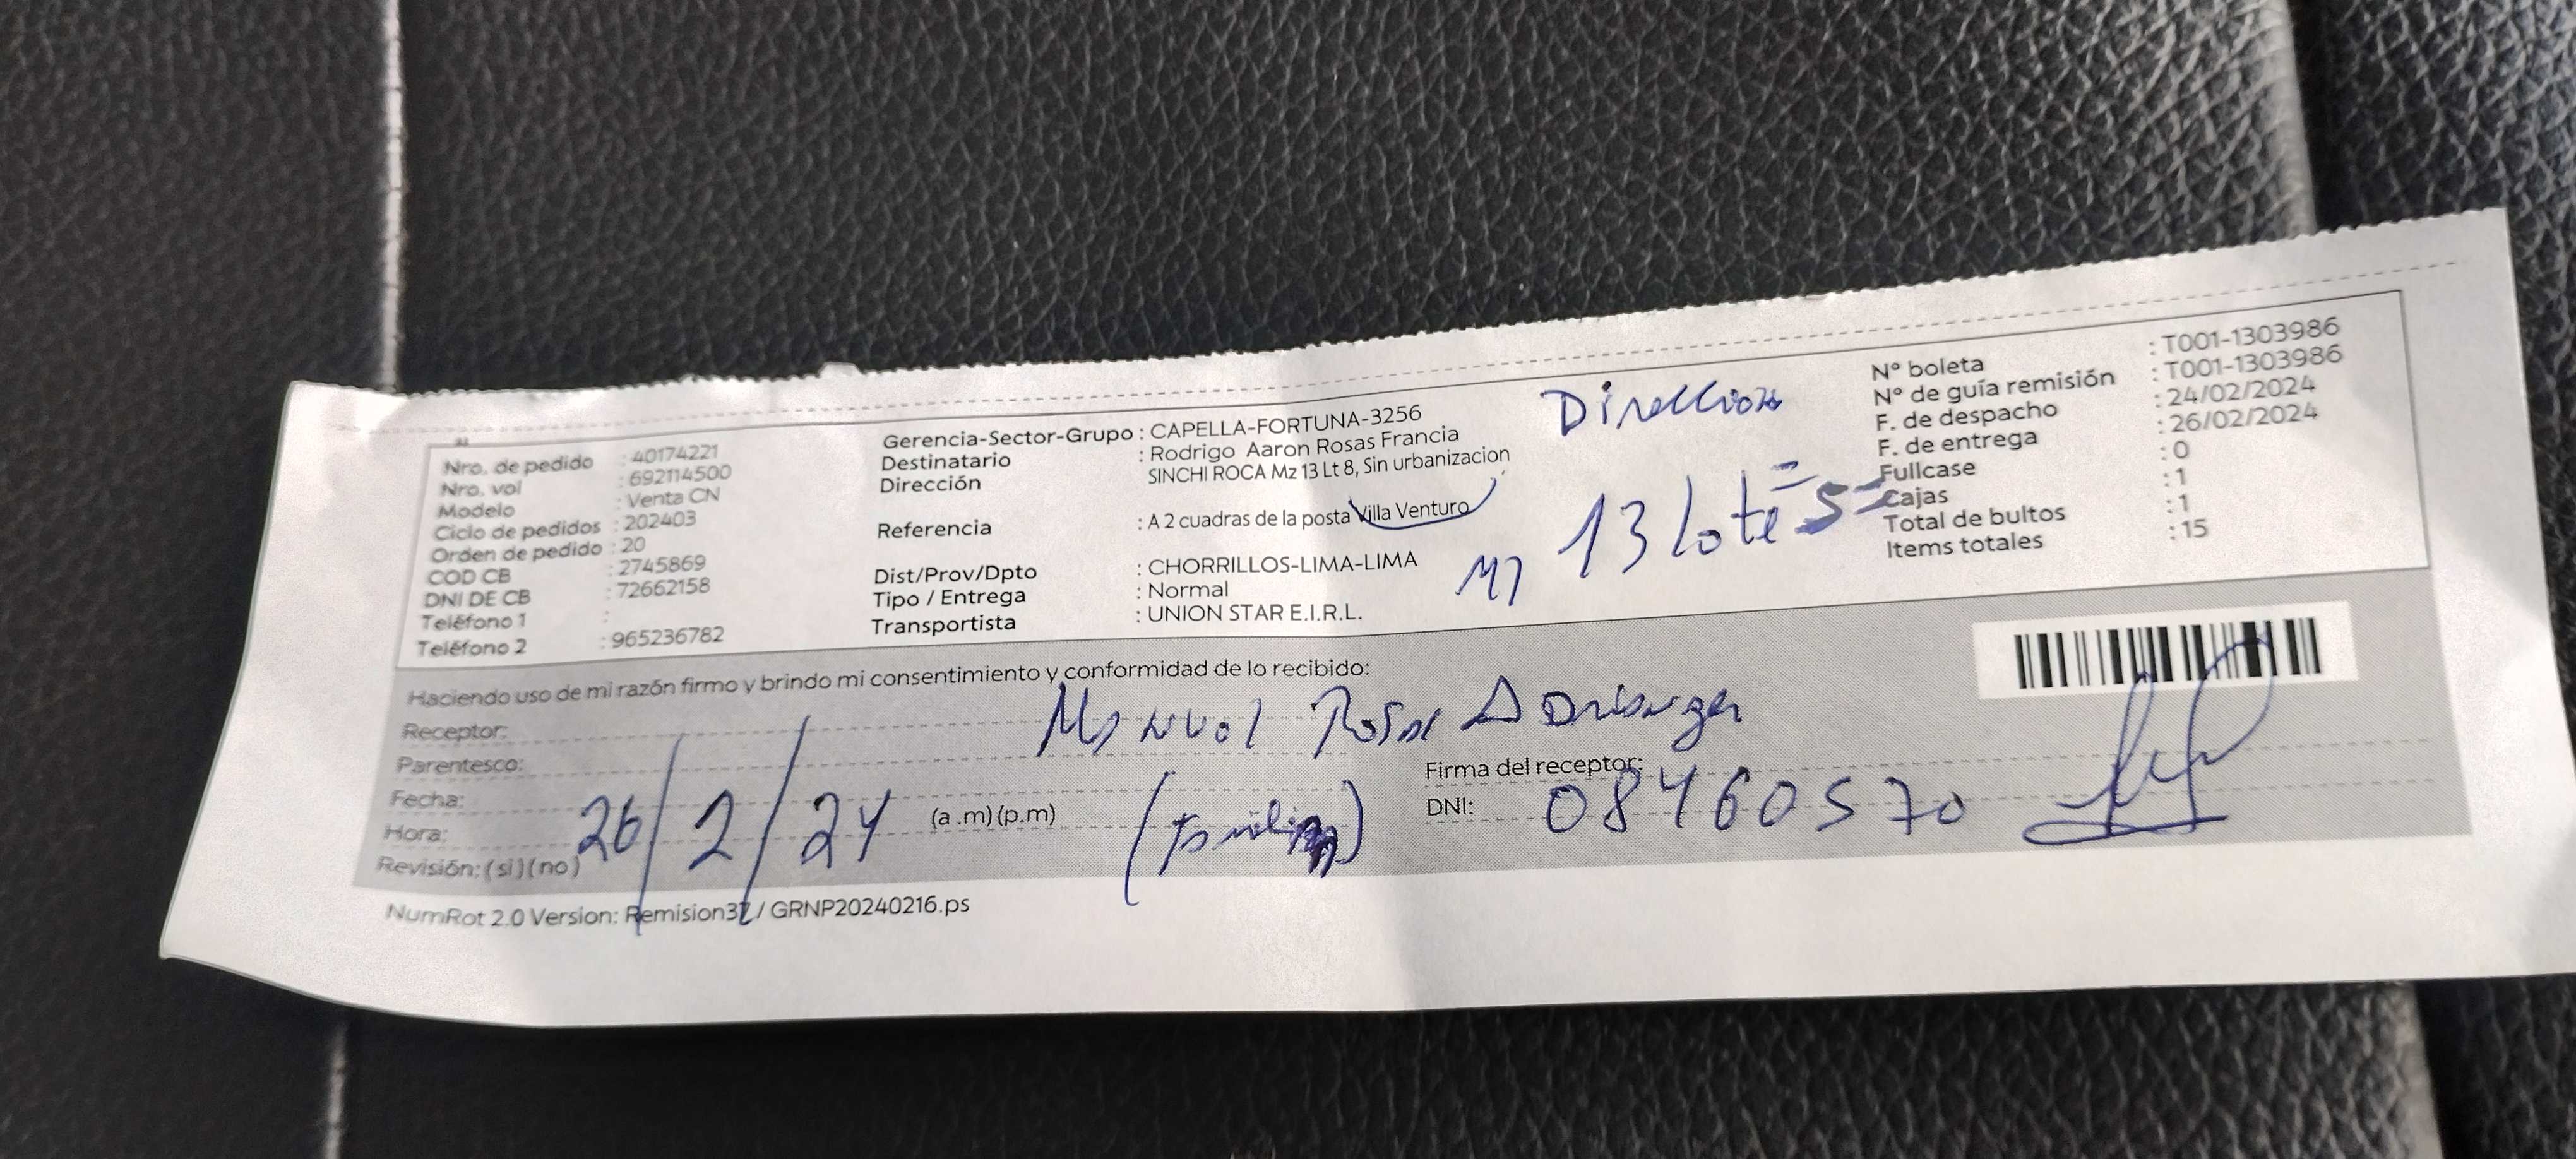 Nro. de pedido : 40174221
Nro. vol : 692114500
Modelo : Venta CN
Ciclo de pedidos : 202403
Orden de pedido : 20
COD CB : 2745869
DNI DE CB : 72662158
Teléfono 1 :
Teléfono 2 : 965236782
Gerencia-Sector-Grupo : CAPELLA-FORTUNA-3256
Destinatario : Rodrigo Aaron Rosas Francia
Dirección SINCHI ROCA Mz 13 Lt 8, Sin urbanizacion
Referencia : A 2 cuadras de la posta Villa Venturo
Dist/Prov/Dpto : CHORRILLOS-LIMA-LIMA
Tipo / Entrega : Normal
Transportista : UNION STAR E.I.R.L.
Direccion
Mz 13 lote 5
N° boleta : T001-1303986
N° de guía remisión : T001-1303986
F. de despacho : 24/02/2024
F. de entrega : 26/02/2024
Fullcase : 0
Cajas : 1
Total de bultos : 1
Items totales : 15
Haciendo uso de mi razón firmo y brindo mi consentimiento y conformidad de lo recibido:
Receptor: Manuel Rosas
Parentesco:
Fecha: 26/2/24
Hora: (a .m) (p.m)
Revisión: ( si ) ( no )
Firma del receptor:
DNI: 08460570
NumRot 2.0 Version: Remision37 / GRNP20240216.ps